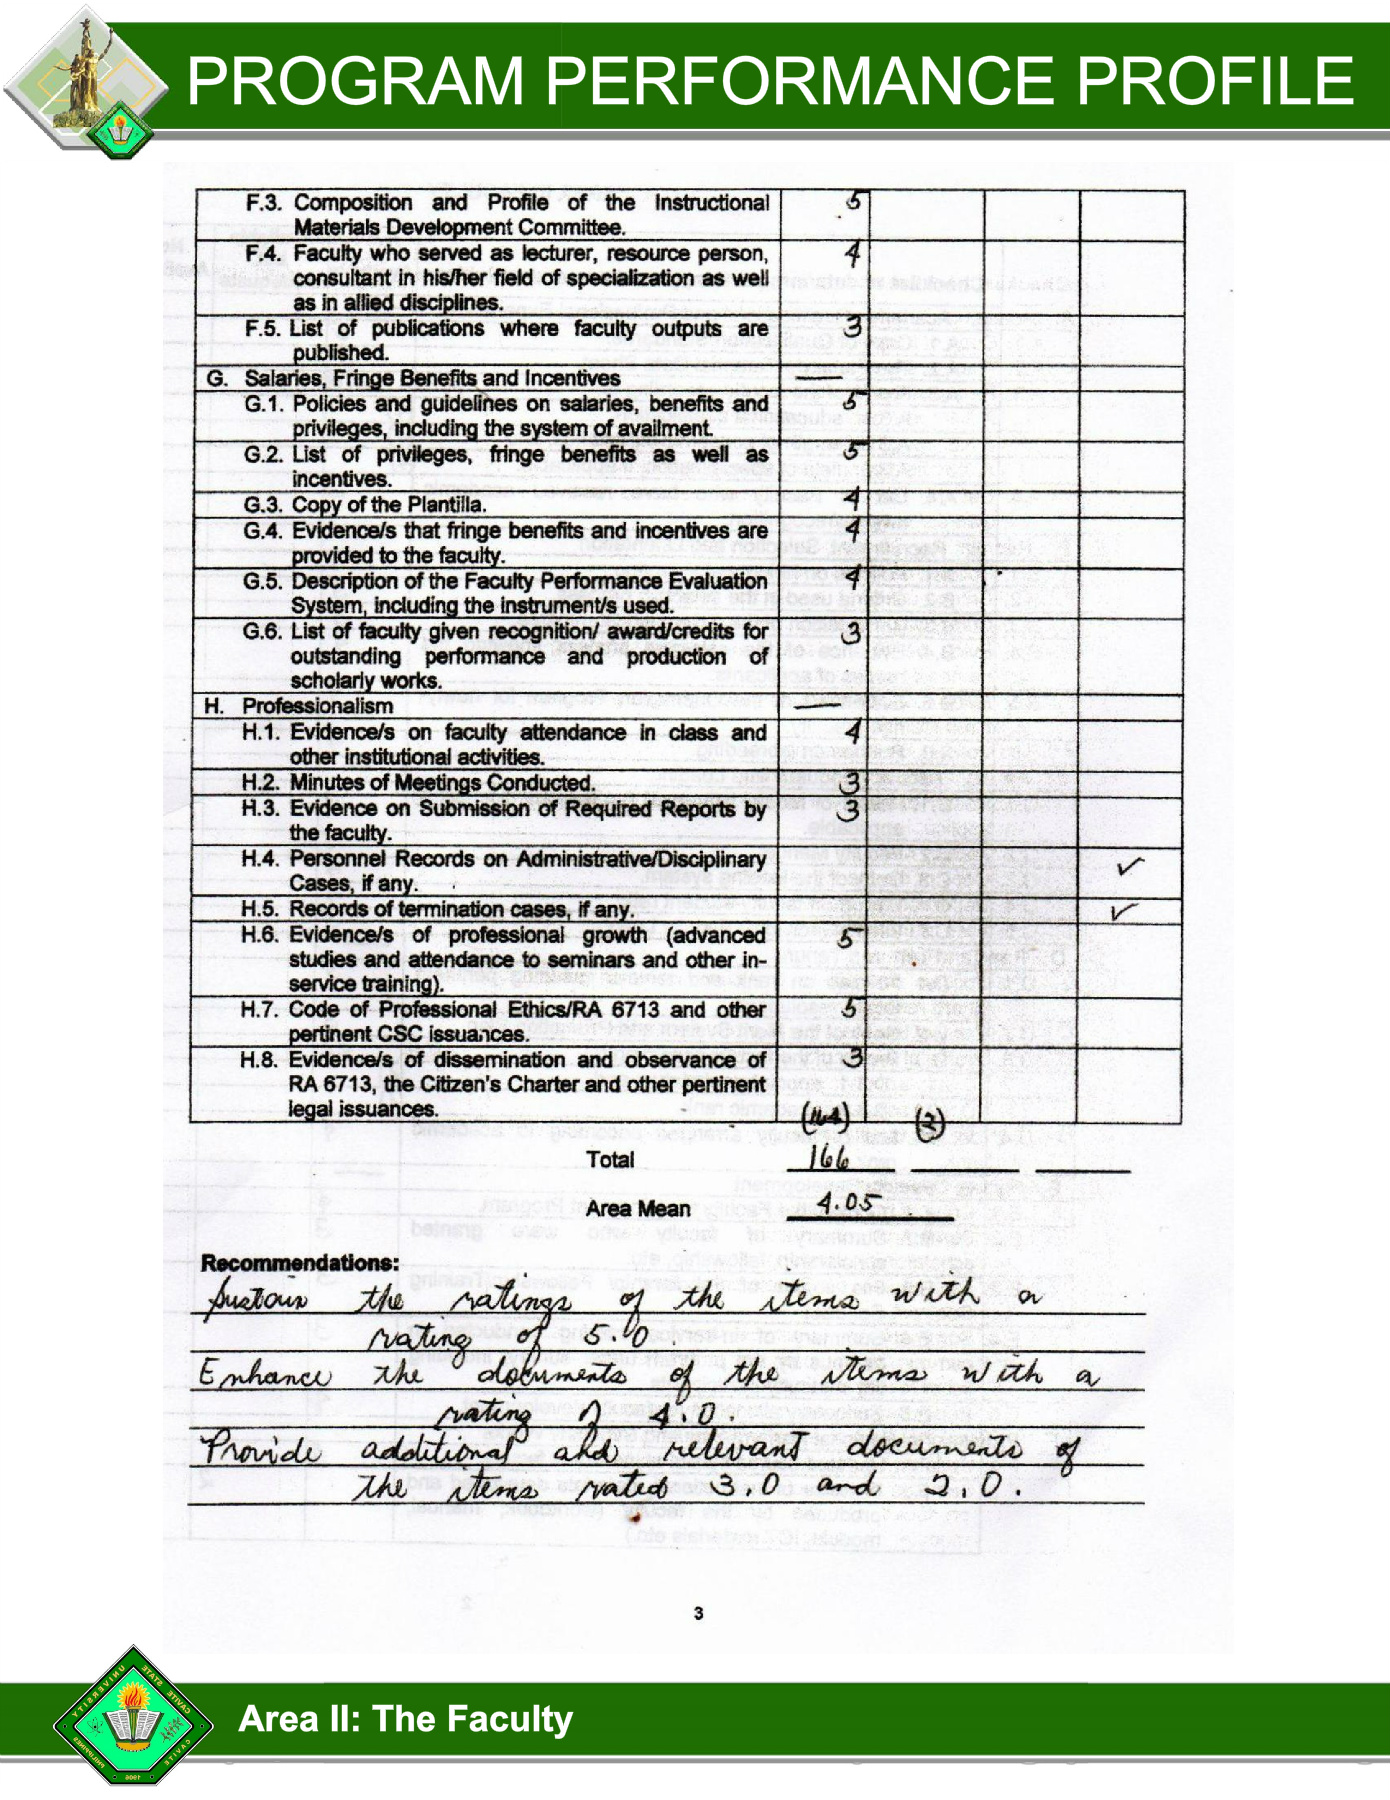 PROGRAM PERFORMANCE PROFILE
F.3. Composition and Profile of the Instructional 5
Materials Development Committee.
F.4. Faculty who served as lecturer, resource person, 4
consultant in his/her field of specialization as well
as in allied disciplines.
F.5. List of publications where faculty outputs are 3
published.
G. Salaries, Fringe Benefits and Incentives —
G.1. Policies and guidelines on salaries, benefits and 5
privileges, including the system of availment.
G.2. List of privileges, fringe benefits as well as 5
incentives.
G.3. Copy of the Plantilla. 4
G.4. Evidence/s that fringe benefits and incentives are 4
provided to the faculty.
G.5. Description of the Faculty Performance Evaluation 4
System, including the instrument/s used.
G.6. List of faculty given recognition/ award/credits for 3
outstanding performance and production of
scholarly works.
H. Professionalism —
H.1. Evidence/s on faculty attendance in class and 4
other institutional activities.
H.2. Minutes of Meetings Conducted. 3
H.3. Evidence on Submission of Required Reports by 3
the faculty.
H.4. Personnel Records on Administrative/Disciplinary ✓
Cases, if any.
H.5. Records of termination cases, if any. ✓
H.6. Evidence/s of professional growth (advanced 5
studies and attendance to seminars and other in-
service training).
H.7. Code of Professional Ethics/RA 6713 and other 5
pertinent CSC issuances.
H.8. Evidence/s of dissemination and observance of 3
RA 6713, the Citizen's Charter and other pertinent
legal issuances.
Total 166
Area Mean 4.05
Recommendations:
Sustain the ratings of the items with a
rating of 5.0.
Enhance the documents of the items with a
rating of 4.0.
Provide additional and relevant documents of
the items rated 3.0 and 2.0.
3
CAVITE STATE UNIVERSITY
CAVITE PHILIPPINES
1906
Area II: The Faculty